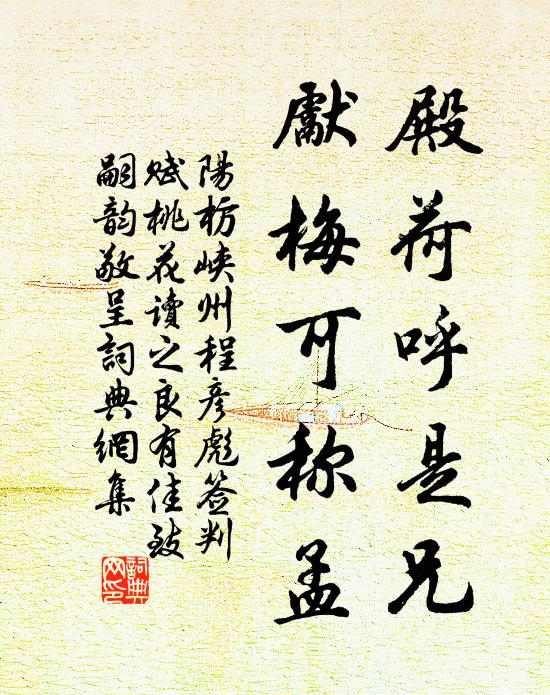 殿荷呼是兄
獻梅可称孟
陽枋峽州程彦彪签判
赋桃花讀之良有佳致
嗣韵敬呈詞典網集
詞典网印